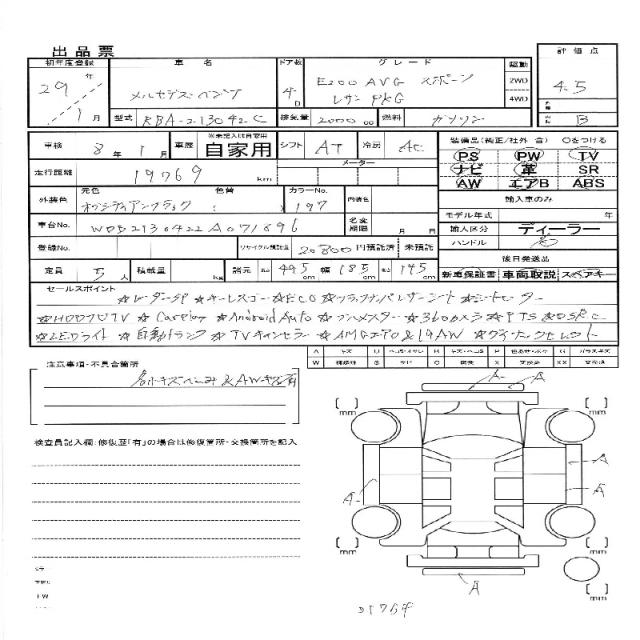 出品票
初年度登録 車名 ドア数 グレード 駆動 評価点
29年 1月 メルセデス・ベンツ 4D E200 AVG スポーツ 2WD 4.5
レザーPKG 4WD
型式 RBA-213042C 排気量 2000 cc 燃料 ガソリン B
車検 8年1月 車歴 ※未記入は自家用 自家用 シフト AT 冷房 AC 装備品(純正/社外 含) ○をつける
走行距離 19769 km メーター PS PW TV
ナビ 革 SR
AW エアB ABS
外装色 元色 色替 カラーNo. 内装色 輸入車のみ
オブシディアンブラック 197 モデル年式 年
車台No. WDB2130422A071896 名変期限 月 日 輸入区分 ディーラー
登録No. リサイクル預託金 20800 円預託済 未預託 ハンドル 右
後日発送品
定員 5人 積載量 kg 諸元 長さ 495 cm 幅 185 cm 高さ 145 cm 新車保証書 車両取説 スペアキー
セールスポイント
☆レーダーSP ☆キーレスゴー ☆ECO ☆ブラックナッパレザーシート ☆シートヒーター
☆HDDナビTV ☆Carplay ☆Android Auto ☆ブルメスター ☆360カメラ ☆PTS & DSRC
☆LEDライト ☆自動トランク ☆TVキャンセラー ☆AMGエアロ&19AW ☆ダイナミックセレクト
注意事項・不具合箇所
小キズへこみ&AWキズ有
検査員記入欄:修復歴「有」の場合は修復箇所・交換箇所を記入
A A
A A
A
A
mm mm
mm mm
mm